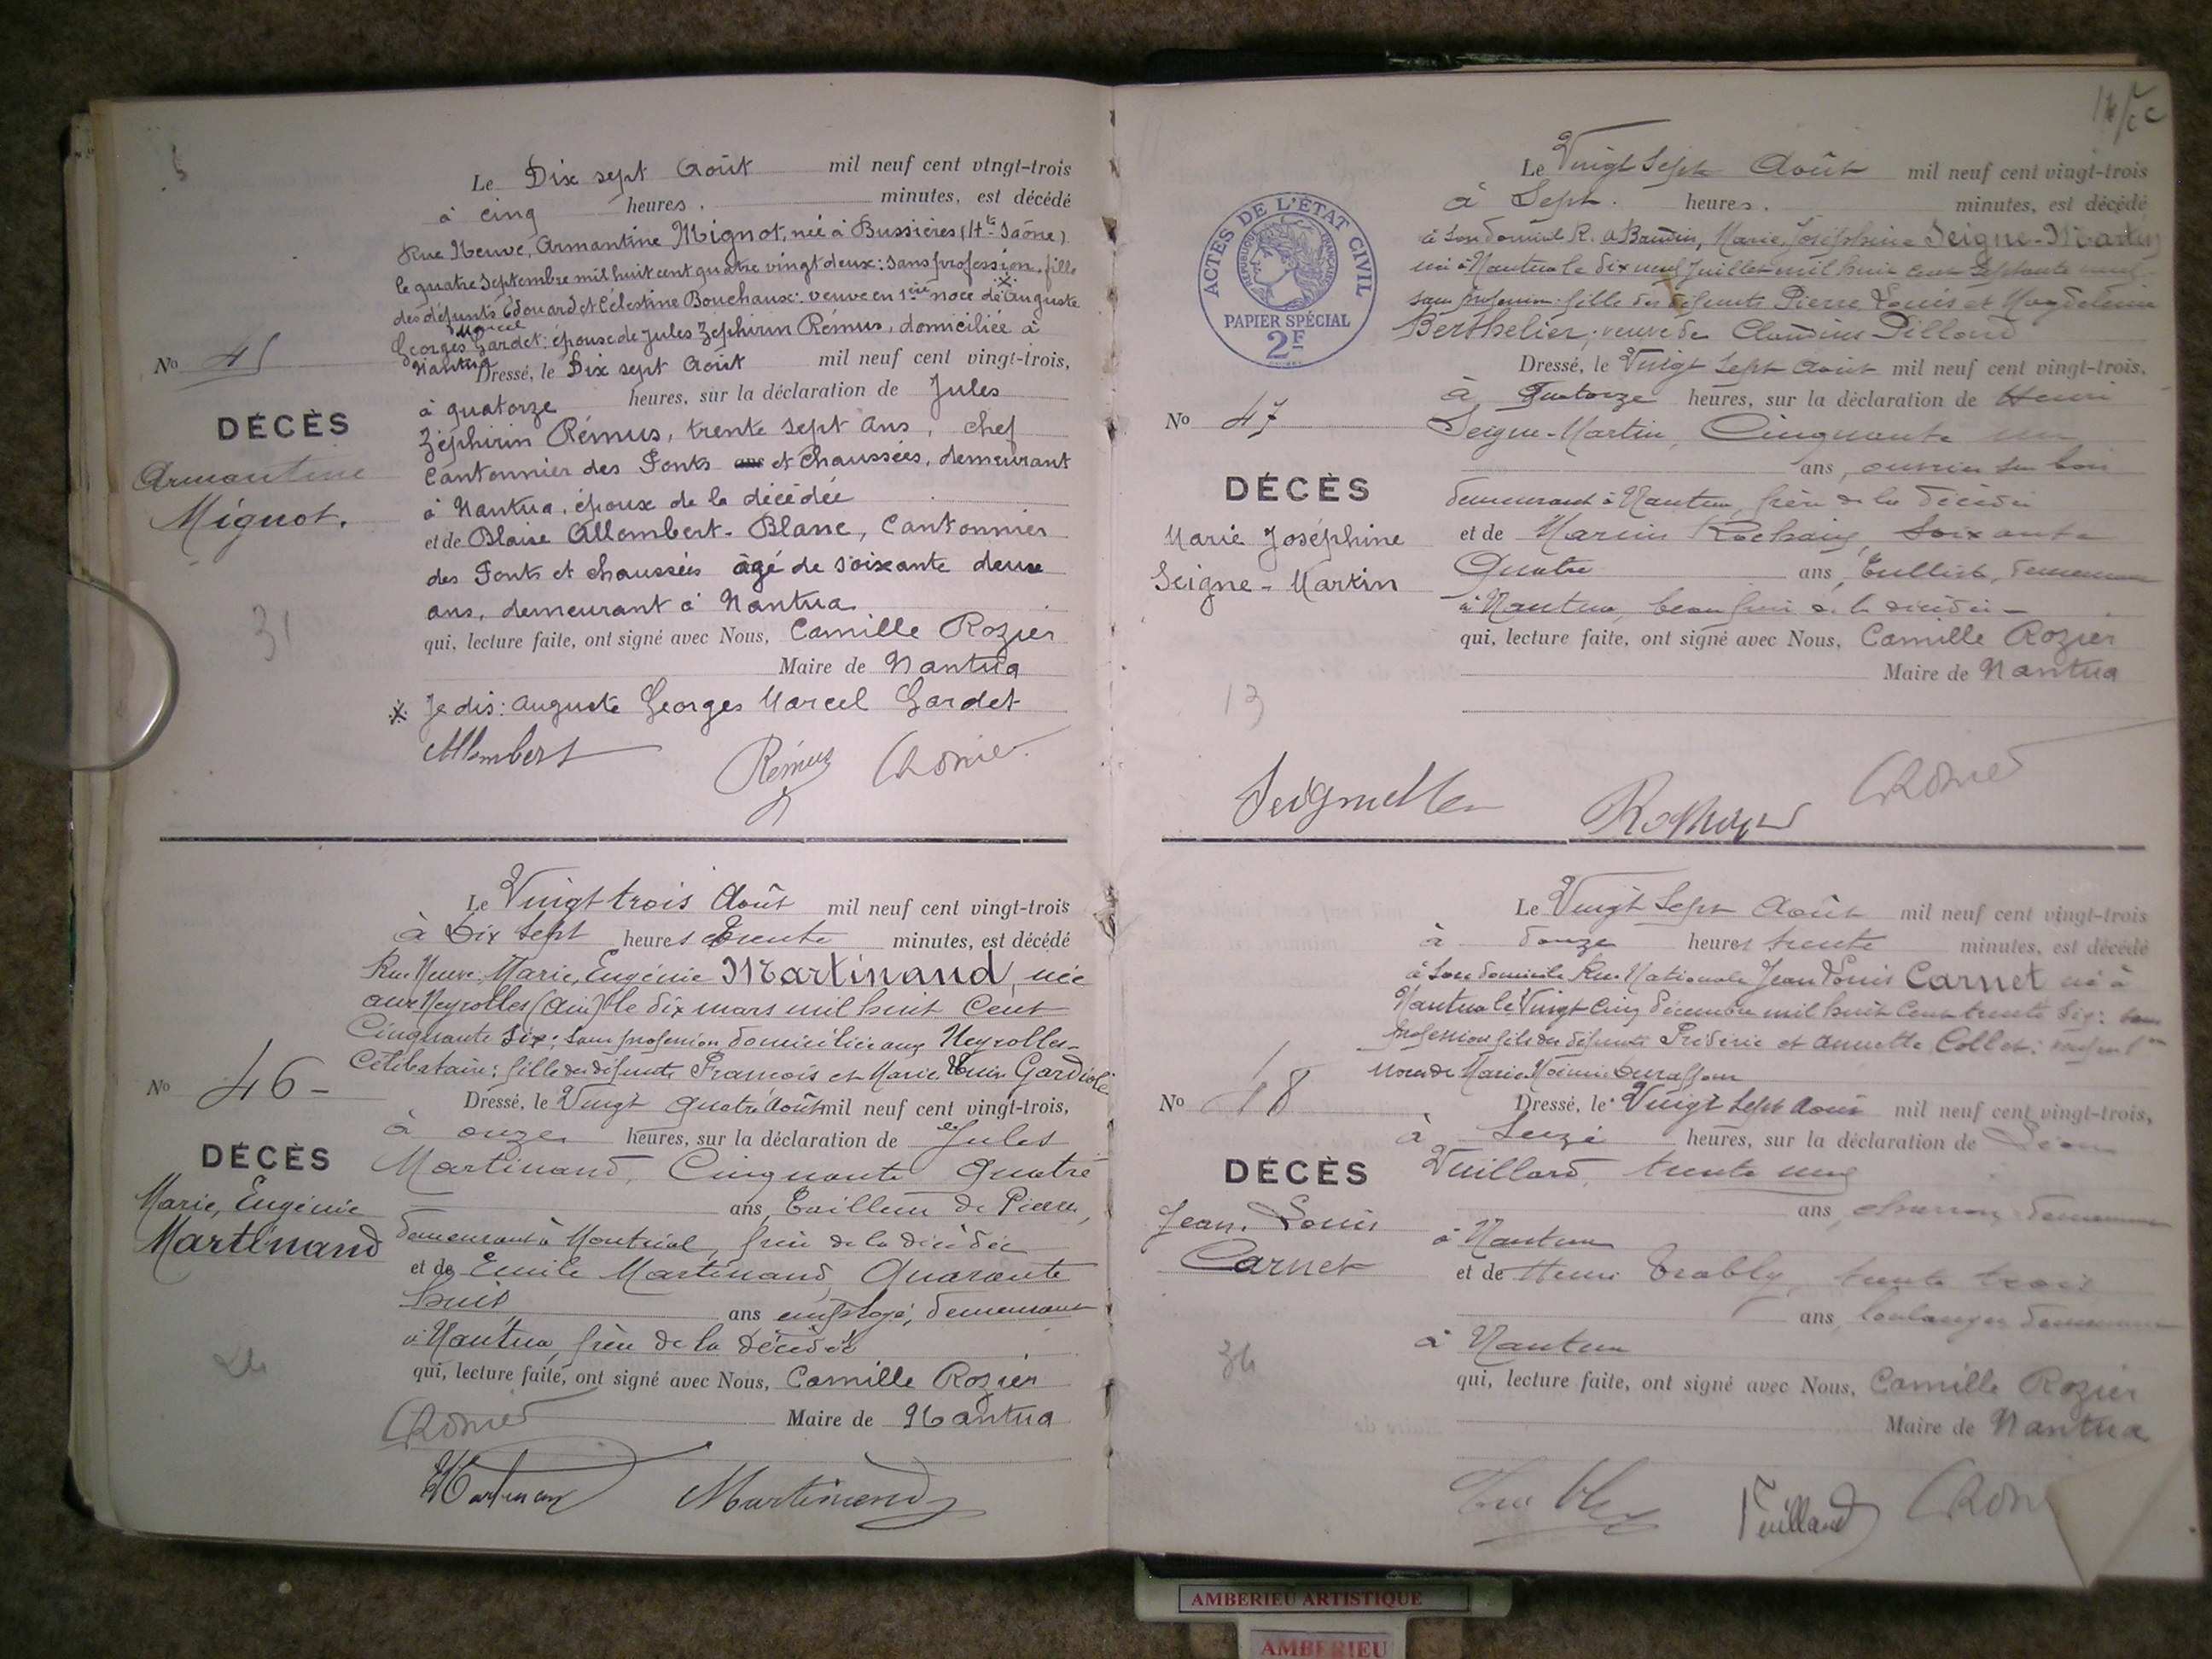 Le Dix sept Août mil neuf cent vingt-trois
à cinq heures. minutes, est décédé
Rue Neuve, Armantine Mignot, née à Bussières (Hte Saône)
le quatre Septembre mil huit cent quatre vingt deux: sans profession. fille
des défunts Edouard et Célestine Bouchaux: veuve en 1ière noce de Auguste
Marcel
Georges Gardet: épouse de Jules Zéphirin Rémus, domiciliée à
Nantua
No 45
DÉCÈS
Armantine
Mignot.
31
Dressé, le Dix sept Août mil neuf cent vingt-trois,
à quatorze heures, sur la déclaration de Jules
Zéphirin Rémus, trente sept ans, chef
Cantonnier des Ponts et Chaussées, demeurant
à Nantua, époux de la décédée
et de Blaise Allombert-Blanc, Cantonnier
des Ponts et chaussées âgé de soixante deux
ans, demeurant à Nantua
qui, lecture faite, ont signé avec Nous, Camille Rozier
Maire de Nantua
Je dis: Auguste Georges Marcel Gardet
Allombert Rémus CRozier
Le Vingt trois Août mil neuf cent vingt-trois
à Dix sept heures trente minutes, est décédé
Rue Neuve, Marie, Eugénie Martinand, née
aux Neyrolles (Ain) le dix mars mil huit cent
Cinquante six; sans profession domiciliée aux Neyrolles-
Célibataire: fille des défunts François et Marie Gardiole
No 46-
DÉCÈS
Marie, Eugénie
Martinand
Dressé, le Vingt quatre Août mil neuf cent vingt-trois,
à onze heures, sur la déclaration de Jules
Martinand, Cinquante quatre
ans, Tailleur de Pierre,
demeurant à Montréal, frère de la décédée
et de Emile Martinand, Quarante
huit ans employé, demeurant
à Nantua, frère de la décédée
qui, lecture faite, ont signé avec Nous, Camille Rozier
Maire de Nantua
CRozier
Martinand Martinand
ACTES DE L'ÉTAT CIVIL
RÉPUBLIQUE FRANÇAISE
PAPIER SPÉCIAL
2F
Le Vingt Sept Août mil neuf cent vingt-trois
à Sept. heures. minutes, est décédé
à son domicile R. a Baudin, Marie, Joséphine Seigne-Martin
née à Nantua le dix neuf Juillet mil huit cent septante neuf
sans profession: fille des défunts Pierre Louis et Magdeleine
Berthelier; veuve de Claudius Pilland
No 47
DÉCÈS
Marie Joséphine
Seigne-Martin
13
Dressé, le Vingt sept Août mil neuf cent vingt-trois,
à Quatorze heures, sur la déclaration de Henri
Seigne-Martin, Cinquante un
ans, ouvrier sur bois
demeurant à Nantua, frère de la décédée
et de Marius Rochaix, Soixante
Quatre ans, Tulliste, demeurant
à Nantua, beau frère de la décédée-
qui, lecture faite, ont signé avec Nous, Camille Rozier
Maire de Nantua
CRozier
Le Vingt Sept Août mil neuf cent vingt-trois
à douze heures trente minutes, est décédé
à son domicile Rue Nationale Jean Louis Carnet né à
Nantua le Vingt Cinq décembre mil huit cent trente six: sans
profession fils des défunts Fréderic et Annette Collet:
noces de Marie
No 48
DÉCÈS
Jean, Louis
Carnet
34
Dressé, le Vingt Sept Août mil neuf cent vingt-trois,
à Seize heures, sur la déclaration de Léon
Vuillard, trente neuf
ans, charron, demeurant
à Nantua
et de Henri Trably, trente trois
ans, boulanger demeurant
à Nantua
qui, lecture faite, ont signé avec Nous, Camille Rozier
Maire de Nantua
Trably Vuillard CRozier
AMBERIEU ARTISTIQUE
AMBERIEU